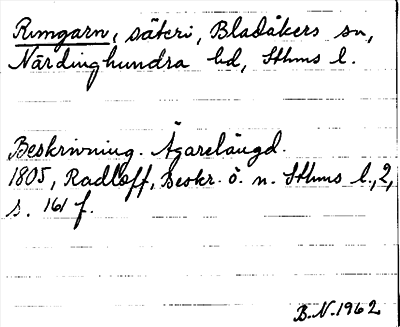 Rumgarn, säteri, Bladåkers sn,
Närdinghundra hd, Sthms l.
Beskrivning. Ägarelängd.
1805, Radloff, Beskr. ö. n. Sthms l., 2,
s. 161 f.
B.N. 1962